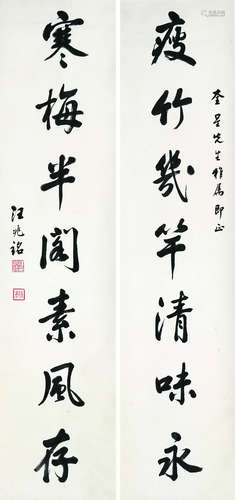 奎星先生雅属即正
瘦竹几竿清味永
寒梅半阁素风存
汪兆铭